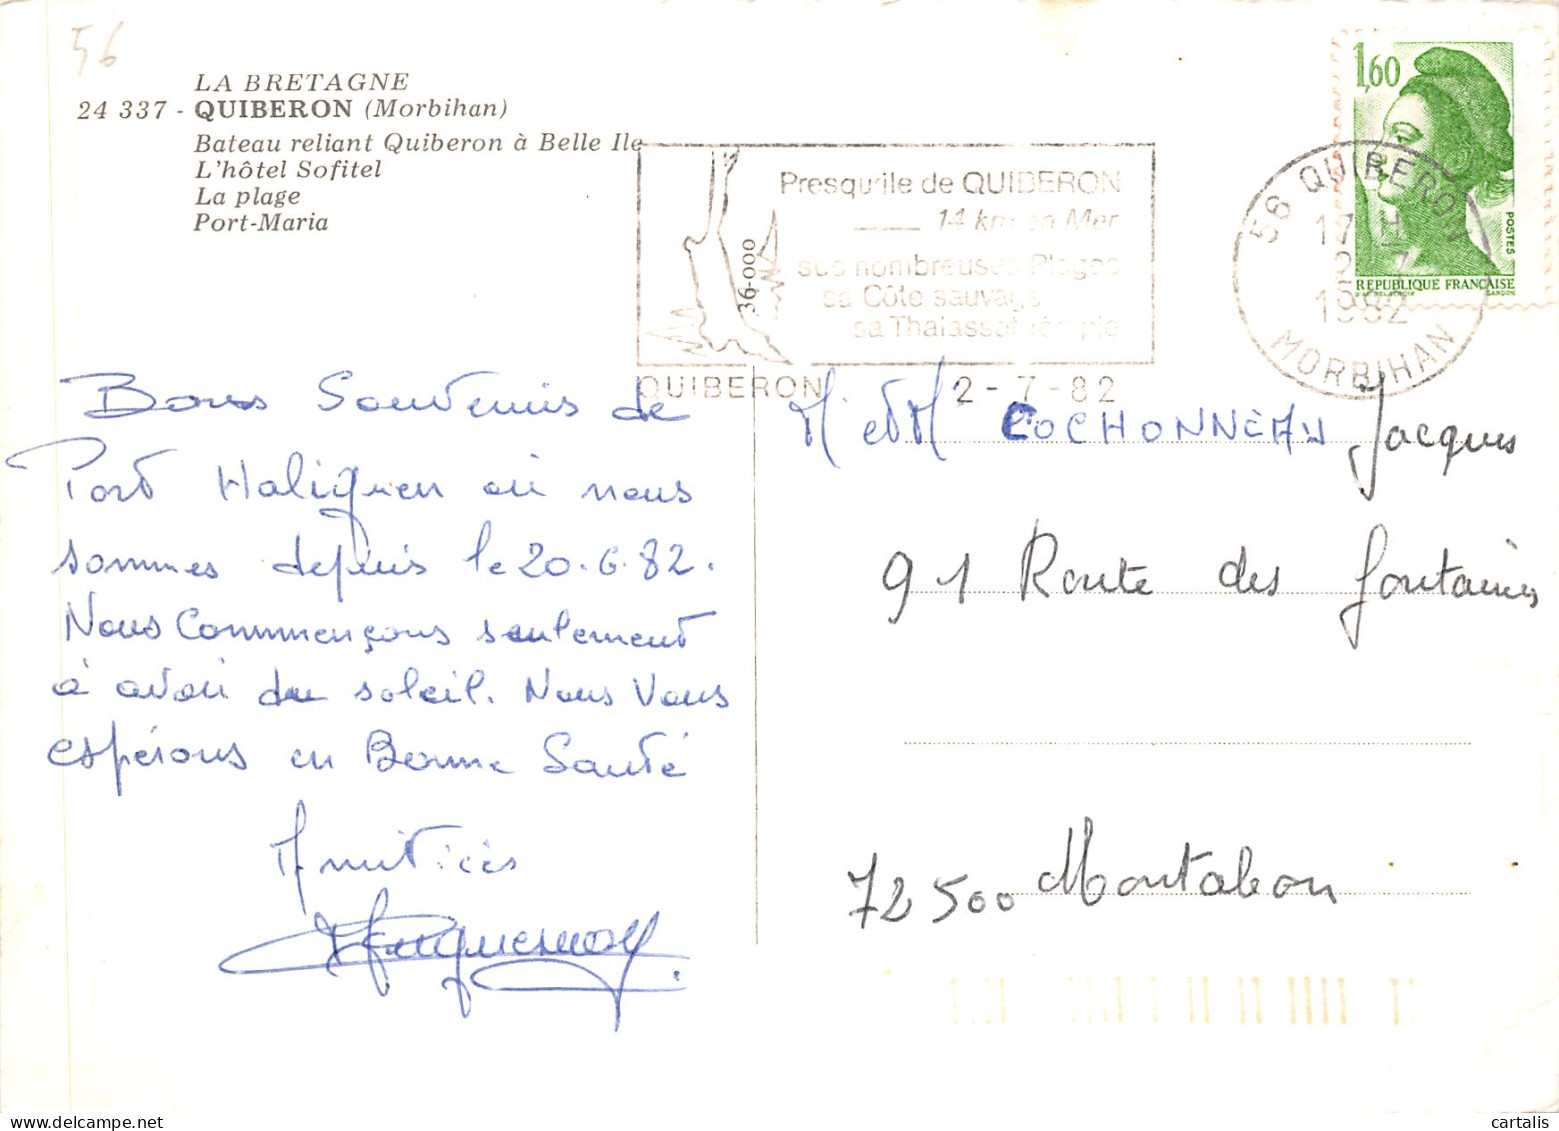 56
LA BRETAGNE
24 337 - QUIBERON (Morbihan)
Bateau reliant Quiberon à Belle Ile
L'hôtel Sofitel
La plage
Port-Maria
36-000
Presqu'ile de QUIBERON
14 km en Mer
ses nombreuses Plages
sa Côte sauvage
sa Thalassothérapie
QUIBERON 2-7-82
56 QUIBERON
17 H
2-7
1982
MORBIHAN
1,60
POSTES
REPUBLIQUE FRANÇAISE
GANDON
Bons Souvenirs de
Port Haliguen où nous
sommes depuis le 20.6.82.
Nous Commençons seulement
à avoir du soleil. Nous Vous
espérons en Bonne Santé
Amitiés
M et M COCHONNEAU Jacques
91 Route des fontaines
72500 Montabon
cartalis